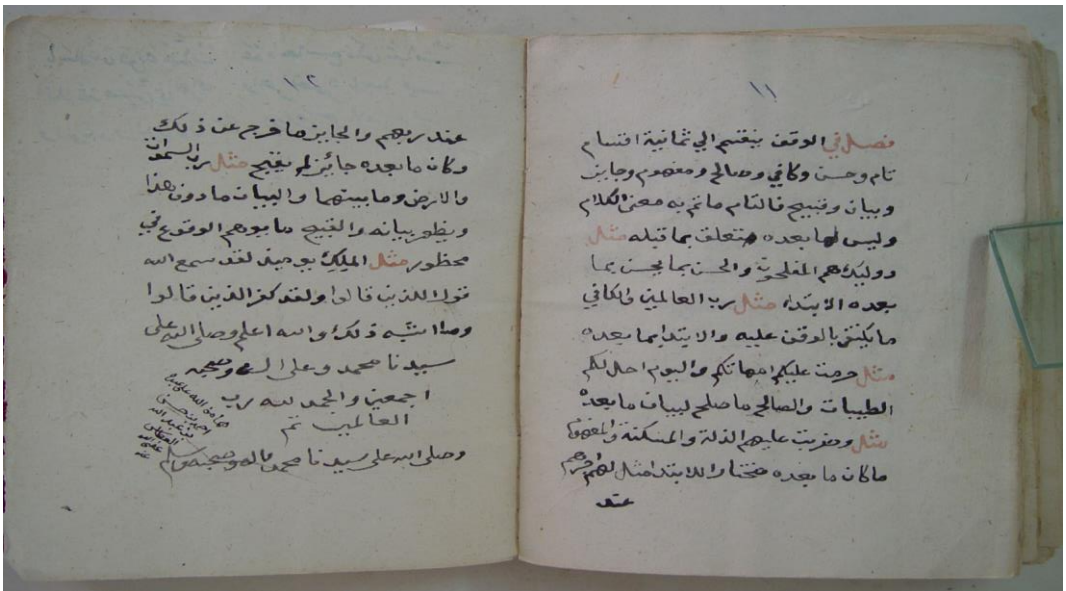 ١١
فصل في الوقف ينقسم الي ثمانية اقسام
تام وحسن وكافي وصالح ومفهوم وجايز
وبيان وقبيح فالتام ماتم به معني الكلام
وليس لما بعده متعلق بما قبله مثل
اوليك هم المفلحون والحسن بما يحسن بما
بعده الابتداء مثل رب العالمين والكافي
ما يكتفي بالوقف عليه والابتدا بما بعده
مثل حرمت عليكم امهاتكم واليوم احل لكم
الطيبات والصالح ما صلح لبيان ما بعده
مثل وضربت عليهم الذلة والمسكنة والمفهوم
ما كان ما بعده مختارا للابتدا مثل لهم اجرهم
عند
١٢
عند ربهم والجايز ما خرج عن ذلك
وكان ما بعده جائز لم يقبح مثل رب السموات
والارض وما بينهما والبيان ما دون هذا
ويظهر بيانه والقبيح ما يوهم الوقوع في
محظور مثل الملك يوميذ لقد سمع الله
قول الذين قالوا ولقد كفر الذين قالوا
وما اشبه ذلك والله اعلم وصلي الله علي
سيدنا محمد وعلي اله وصحبه
اجمعين والحمد لله رب
العالمين تم
وصلي الله علي سيدنا محمد واله وصحبه وسلم